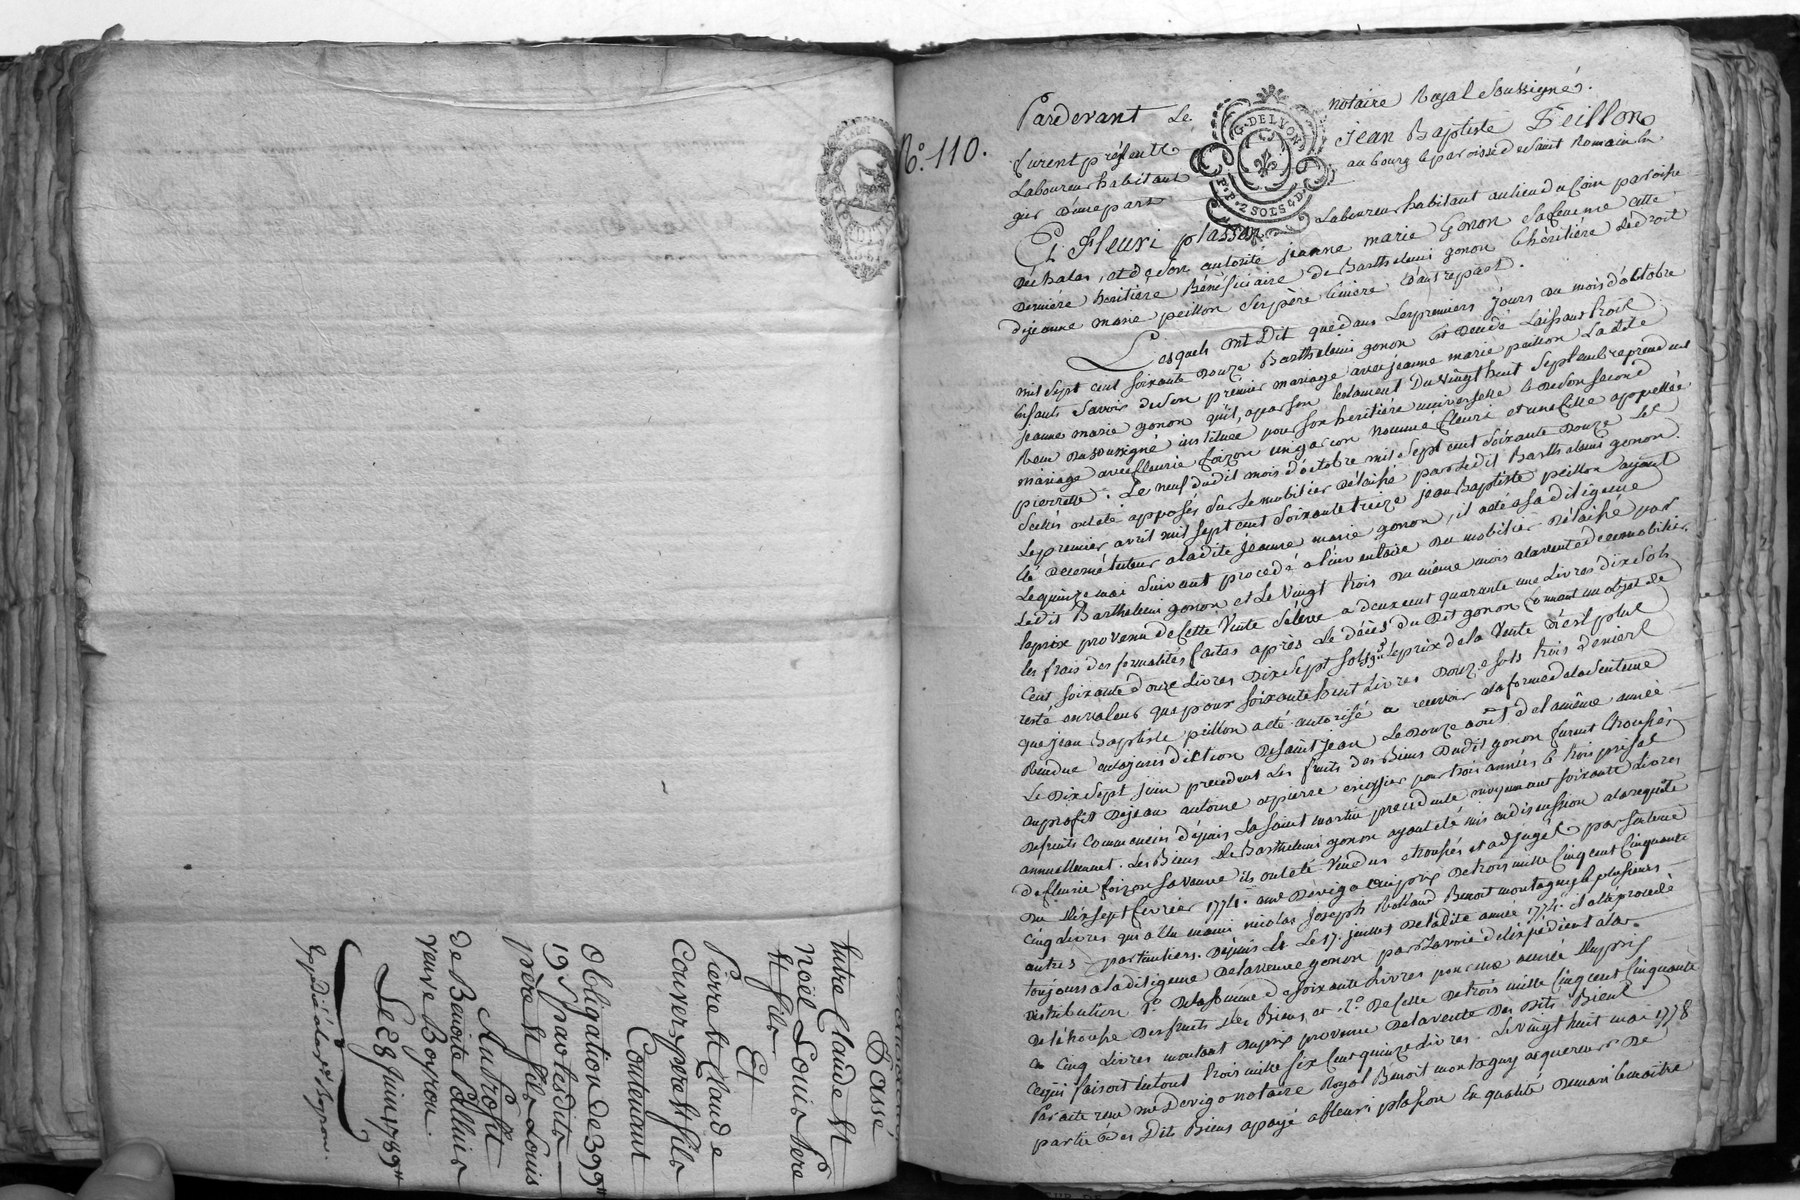 Passé
Entre Claude et
Noël Louis Nere
et fils
Et
Pierre et Claude
Couxerd pere et fils
Contenant
Obligation de 399tt
19s par lesdits
père et fils Louis
Au Profit
de Benoite Vellein
veuve Boyron.
Le 28 Juin 1789
N.o 110.
G. DE LYON
F. P. 2 SOLS 4 D.
Pardevant Le notaire Royal Soussigné.
furent présents Jean Baptiste Peillon
Laboureur habitant au bourg & paroisse de saint Romain en
gier d'une part
Et Fleuri plasson Laboureur habitant au lieu du Coin paroisse
Déchalas, et de son autorité jeanne marie Gonon sa femme cette
dernière heritière Bénéficiaire de Barthelemi gonon & héritière de droit
de jeanne marie peillon ses père & mère d'autre part.
Lesquels ont Dit que dans Les premiers jours du mois d'octobre
mil sept cent soixante douze Barthelemi gonon est decedé Laissant trois
Enfants Savoir de son premier mariage avec jeanne marie peillon Ladite
jeanne marie gonon qu'il, a par son testament Du vingt huit Septembre prend
Recu du soussigné instituée pour son heritière universelle & de son second
mariage avec fleurie foizon un garcon nommé fleuri et une fille appellée
pierrette. Le neuf dudit mois d'octobre mil sept cent soixante Douze Les
Scellés ont eté apposés Sur Le mobilier Délaissé par Ledit Barthelemi gonon.
Le premier avril mil sept cent soixante treize jean Baptiste peillon ayant
été decerné tuteur a ladite jeanne marie gonon, il a été a sa diligence
Le quinze mai Suivant procedé a l'inventaire du mobilier Délaissé par
Ledit Barthelemi gonon et Le Vingt trois du même mois a la vente de ce mobilier.
le prix provenu de Cette Vente S'éleve a deux cent quarante une Livres dix sols
les frais des formalités faites après Le décès du Dit gonon formant un objet de
Cent soixante douze Livres Dix Sept Sols 9d le prix de la Vente n'est plus
resté en valeur que pour soixante huit Livres Douze sols trois deniers
que jean Baptiste peillon a été autorisé a recevoir a la forme de la Sentence
Rendue en la jurisdiction de Saint jean Le Douze août de la même année
Le Dix Sept juin precedent Les fruits des Biens Dudit gonon furent troussés
au profit De jean antoine et pierre pour trois années & trois prises
de fruits Commencées depuis La Saint martin precedente moyennant soixante Livres
annuellement. Les Biens de Barthelemi gonon ayant été mis en discussion a la requête
De fleurie foizon sa veuve ils ont eté Vendus troussés et adjugés par sentence
Du Dix sept fevrier 1774. a me Dévigo au prix De trois mille Cinq cent Cinquante
Cinq Livres qui a élu en ami nicolas joseph Rolland Benoit montagny & plusieurs
autres particuliers. Depuis & Le 17. juillet De ladite année 1774. il a été procedé
toujours a la diligence De la veuve gonon par La voie de l'expédient a la
distribution 1.o De la somme de soixante Livres pour une année du prix
de la trousse Des fruits des Biens, et 2.o De celle de trois mille Cinq cent Cinquante
Cinq Livres montant Du prix provenu De la vente Des Dits Biens
ce qui faisoit En tout trois mille six Cent quinze Livres. Le vingt huit mai 1778
Par acte reçu me Devigo notaire Royal Benoit montagny acquereur De
partie Des Dits Biens a payé a fleuri plasson En qualité De mari & maitre